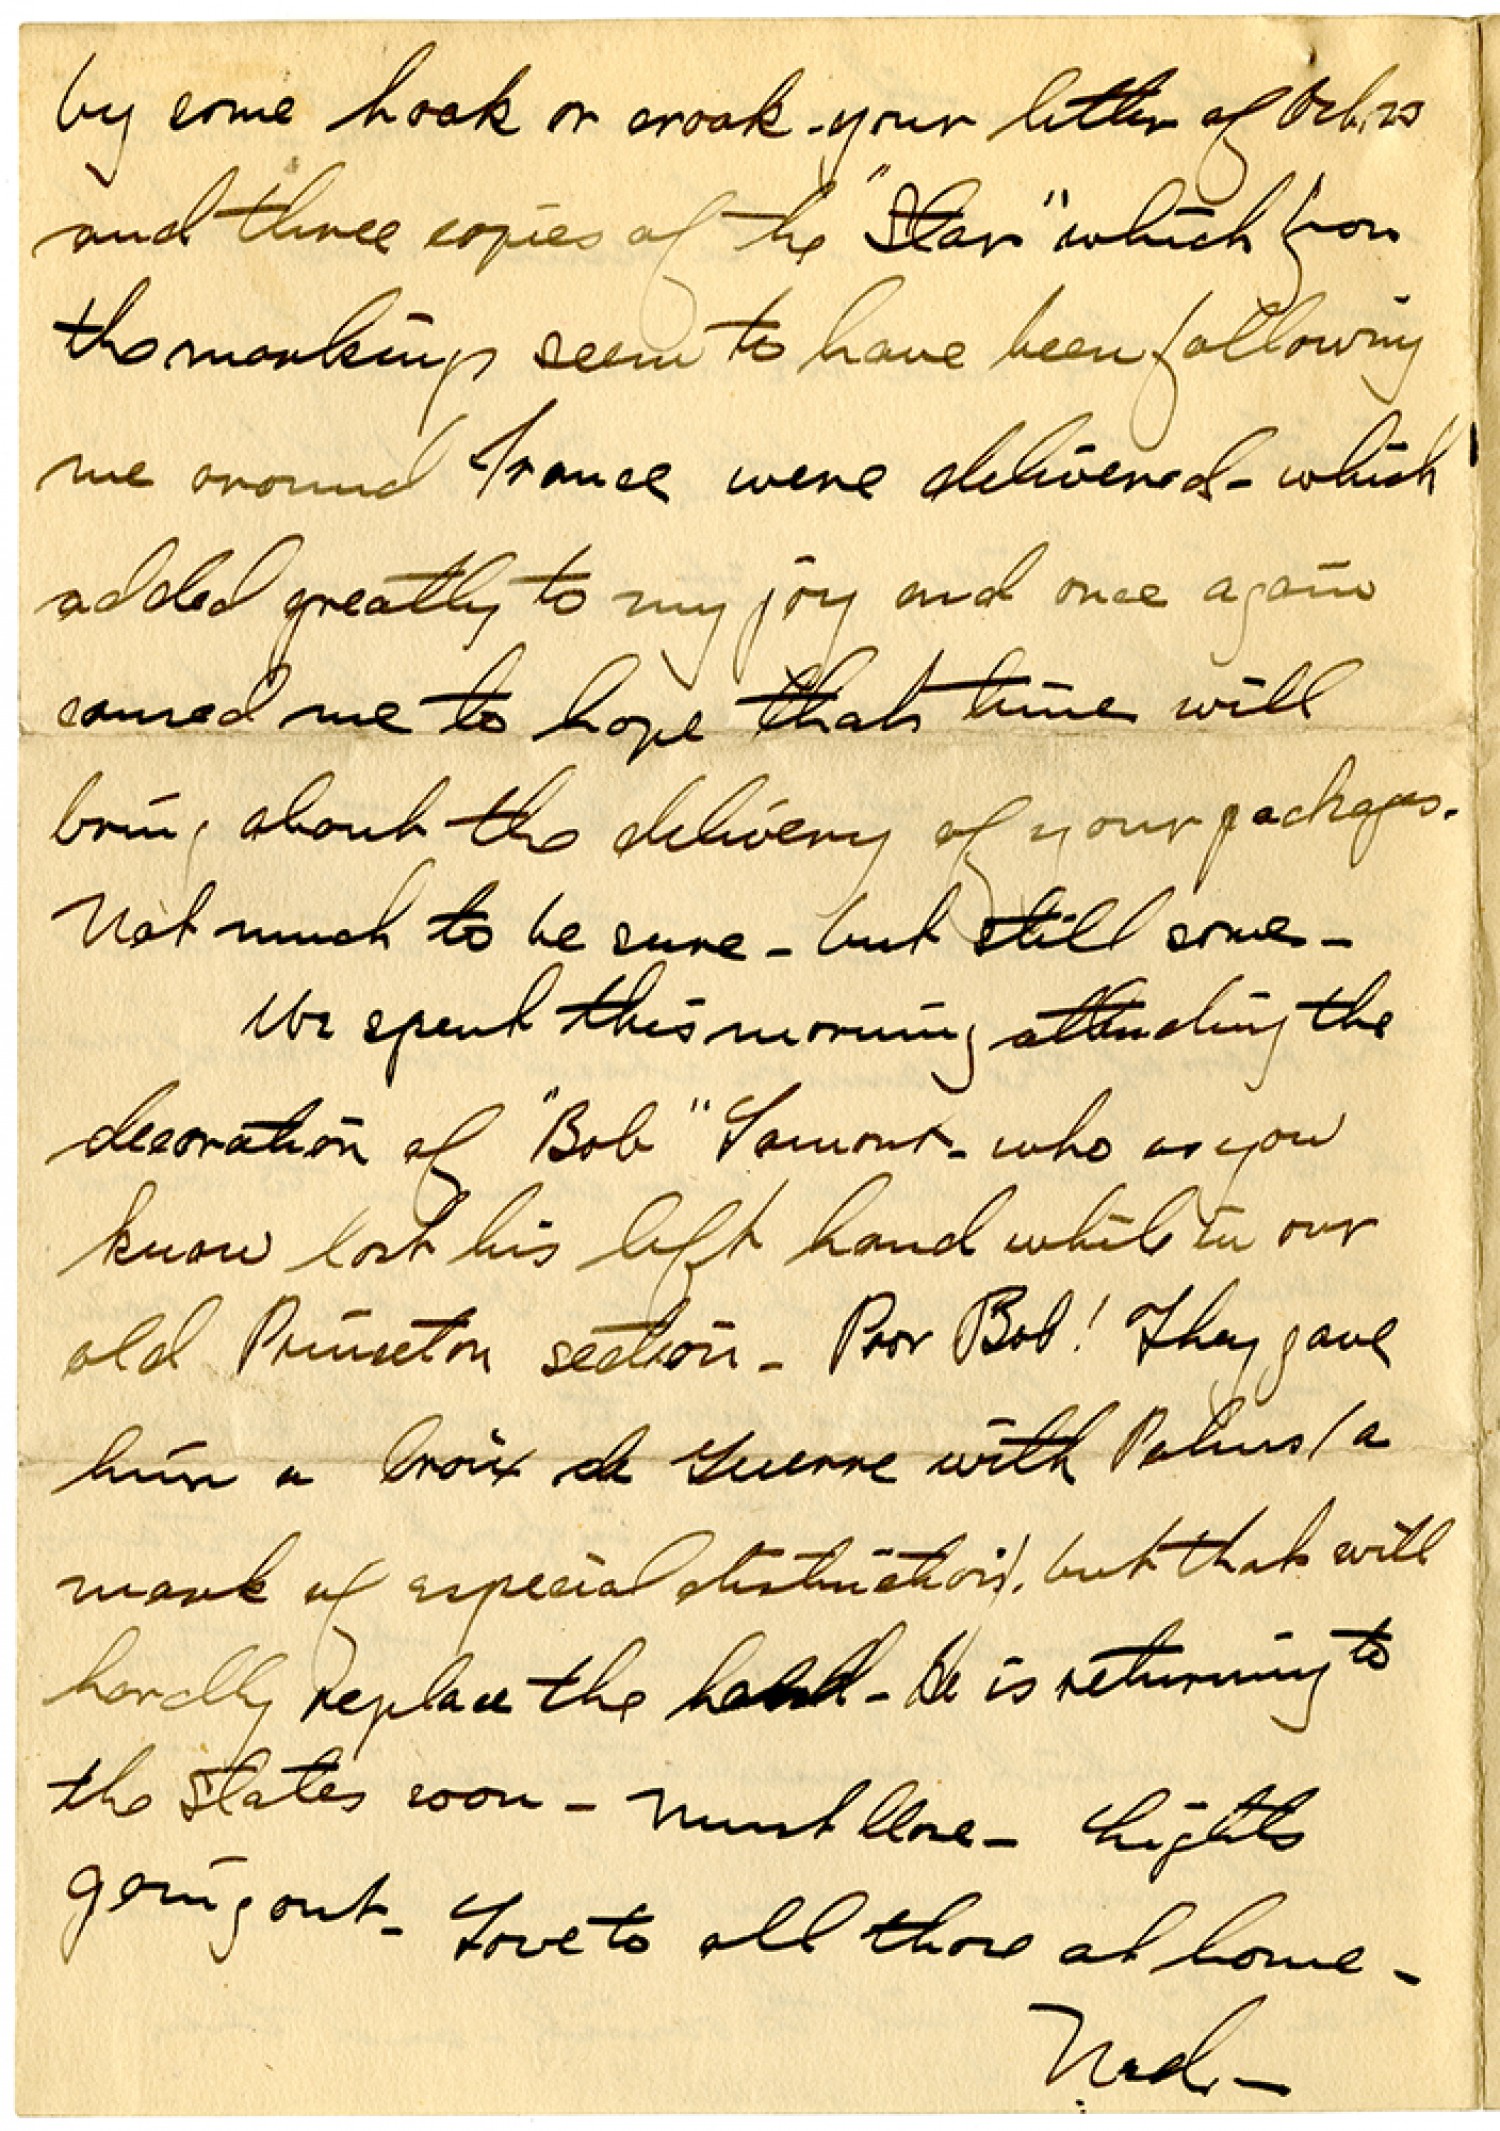 by some hook or crook - your letter of Oct. 23
and three copies of the "Star" which from
the markings seem to have been following
me around France were delivered - which
added greatly to my joy and once again
caused me to hope that time will
bring about the delivery of your packages.
Not much to be sure - but still some -
We spent this morning attending the
decoration of "Bob" Lamont - who as you
know lost his left hand while in our
old Princeton section - Poor Bob! They gave
him a Croix de Guerre with Palms (a
mark of especial distinction), but that will
hardly replace the hand - He is returning to
the States soon - Must close - Lights
going out - Love to all those at home -
Ned -